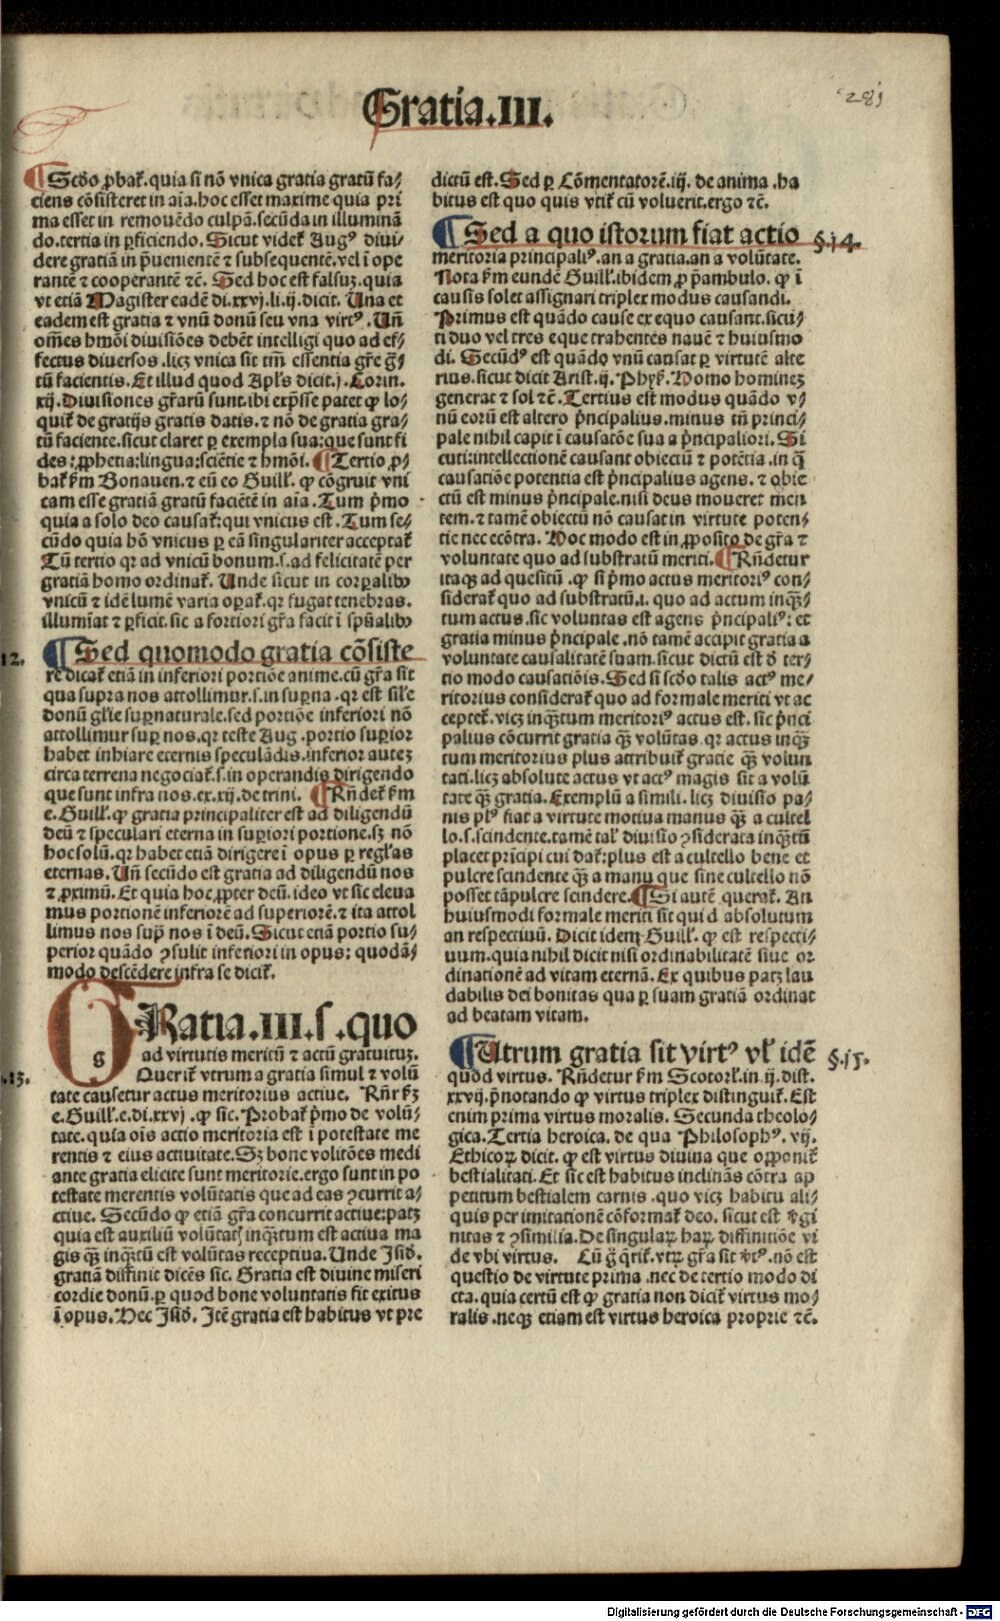 Gratia.III.
281
¶ Scðo ꝓbat̄.quia si nō vnica gratia gratū fa⸗
ciens cōsisteret in aīa.hoc esset maxime quia pri
ma esset in remouēdo culpā.secūda in illuminā
do.tertia in ꝑficiendo. Sicut videt̄ Augꝰ diui⸗
dere gratiā in p̄uenientē ⁊ subsequentē.vel ī ope
rantē ⁊ cooperantē ⁊c̄. Sed hoc est falsuz.quia
vt etiā Magister eadē di.xxvj.li.ij.dicit. Una et
eadem est gratia ⁊ vnū donū seu vna virtꝰ. Un̄
om̄es hmōi diuisiōes debēt intelligi quo ad ef⸗
fectus diuersos.licꝫ vnica sit tm̄ essentia gr̄e gr̄a⸗
tū facientis. Et illud quod Apl's dicit.j. Corin.
xij. Diuisiones gr̄arū sunt.ibi exp̄sse patet ꝙ lo⸗
quit̄ de gratijs gratis datis.⁊ nō de gratia gra⸗
tū faciente.sicut claret ꝑ exempla sua:que sunt fi
des:ꝓphetia:lingua:sciētie ⁊ hmōi. ¶ Tertio ꝓ⸗
bat̄ ẜm Bonauen.⁊ eū eo Guill'. ꝙ cōgruit vni
cam esse gratiā gratū faciētē in aīa. Tum p̄mo
quia a solo deo causat̄:qui vnicus est. Tum se⸗
cūdo quia hō vnicus ꝑ eā singulariter acceptat̄
Tū tertio qr ad vnicū bonum.s.ad felicitatē per
gratiā homo ordinat̄. Unde sicut in corꝑalibꝰ
vnicū ⁊ idē lumē varia oꝑat̄.qr fugat tenebras.
illumīat ⁊ ꝑficit.sic a fortiori gr̄a facit ī spūalibꝰ
12.
¶ Sed quomodo gratia cōsiste
re dicat̄ etiā in inferiori portiōe anime.cū gr̄a sit
qua supra nos attollimur.s.in suꝑna.qr est sil'e
donū gl'ie suꝑnaturale.sed portiōe inferiori nō
attollimur suꝑ nos.qr teste Aug.portio suꝑior
habet inhiare eternis speculādis.inferior autez
circa terrena negociat̄.s.in operandis dirigendo
que sunt infra nos.ex.xij.de trini. ¶ Rn̄det̄ ẜm
e. Guill'. ꝙ gratia principaliter est ad diligendū
deū ⁊ speculari eterna in suꝑiori portione.sꝫ nō
hoc solū.qr habet etiā dirigere ī opus ꝑ regl'as
eternas. Un̄ secūdo est gratia ad diligendū nos
⁊ ꝓximū. Et quia hoc ꝓpter deū.ideo vt sic eleua
mus portionē inferiorē ad superiorē.⁊ ita attol
limus nos sup̄ nos ī deū. Sicut etiā portio su⸗
perior quādo ꝯsulit inferiori in opus: quodā⸗
modo descēdere infra se dicit̄.
GRatia.III.s.quo
g
ad virtutis meritū ⁊ actū gratuituꝫ.
.13.
Querit̄ vtrum a gratia simul ⁊ volū
tate causetur actus meritorius actiue. Rn̄r ẜꝫ
e. Guill'.e.di.xxvj. ꝙ sic. Probat̄ p̄mo de volū⸗
tate.quia oīs actio meritoria est ī potestate me
rentis ⁊ eius actiuitate. Sꝫ bone volitōes medi
ante gratia elicite sunt meritorie.ergo sunt in po
testate merentis volūtatis que ad eas ꝯcurrit a⸗
ctiue. Secūdo ꝙ etiā gr̄a concurrit actiue:patꝫ
quia est auxiliū volūtatꝭ inqꝫtum est actiua ma
gis qꝫ inqꝫtū est volūtas receptiua. Unde Isið.
gratiā diffinit dicēs sic. Gratia est diuine miseri
cordie donū.ꝑ quod bone voluntatis fit exitus
ī opus. Hec Isið. Itē gratia est habitus vt pre
dictū est. Sed ꝑ Cōmentatorē.iij. de anima.ha
bitus est quo quis vtit̄ cū voluerit.ergo ⁊c̄.
¶ Sed a quo istorum fiat actio
§.14.
meritoria principaliꝰ.an a gratia.an a volūtate.
Nota ẜm eundē Guill'.ibidem ꝓ p̄ambulo. ꝙ ī
causis solet assignari triplex modus causandi.
Primus est quādo cause ex equo causant.sicu⸗
ti duo vel tres eque trahentes nauē ⁊ huiusmo
di. Secūdꝰ est quādo vnū causat ꝑ virtutē alte
rius.sicut dicit Arist.ij. Phyſ̄. Homo homineꝫ
generat ⁊ sol ⁊c̄. Tertius est modus quādo v⸗
nū eorū est altero p̄ncipalius.minus tn̄ princi⸗
pale nihil capit ī causatōe sua a p̄ncipaliori. Si
cuti:intellectionē causant obiectū ⁊ potētia.in q̄
causatiōe potentia est p̄ncipalius agens.⁊ obie
ctū est minus p̄ncipale.nisi deus moueret men
tem.⁊ tamē obiectū nō causat in virtute poten⸗
tie nec ecōtra. Hoc modo est in ꝓposito de gr̄a ⁊
voluntate quo ad substratū meriti. ¶ Rn̄detur
itaqꝫ ad quesitū. ꝙ si p̄mo actus meritoriꝰ con⸗
siderat̄ quo ad substratū.i. quo ad actum inqꝫ⸗
tum actus.sic voluntas est agens p̄ncipaliꝰ: et
gratia minus p̄ncipale.nō tamē accipit gratia a
voluntate causalitatē suam.sicut dictū est ð ter⸗
tio modo causatiōis. Sed si scðo talis actꝰ me⸗
ritorius considerat̄ quo ad formale meriti vt ac
ceptet̄.vicꝫ inqꝫtum meritoriꝰ actus est. sic p̄nci
palius cōcurrit gratia qꝫ volūtas. qr actus inqꝫ
tum meritorius plus attribuit̄ gratie qꝫ volun
tati.licꝫ absolute actus vt actꝰ magis sit a volū
tate qꝫ gratia. Exemplū a simili. licꝫ diuisio pa⸗
nis plꝰ fiat a virtute motiua manus qꝫ a cultel
lo.s.scindente.tamē tal' diuisio ꝯsiderata inqꝫtū
placet prīcipi cui dat̄:plus est a cultello bene et
pulcre scindente qꝫ a manu que sine cultello nō
posset tāpulcre scindere. ¶ Si autē querat̄. An
huiusmodi formale meriti sit quid absolutum
an respectiuū. Dicit idem Guill'. ꝙ est respecti⸗
uum.quia nihil dicit nisi ordinabilitatē siue or
dinationē ad vitam eternā. Ex quibus patꝫ lau
dabilis dei bonitas qua ꝑ suam gratiā ordinat
ad beatam vitam.
¶ Utrum gratia sit virtꝰ vl' idē
§.15.
quod virtus. Rn̄detur ẜm Scotorl'.in.ij.dist.
xxvij.p̄notando ꝙ virtus triplex distinguit̄. Est
enim prima virtus moralis. Secunda theolo⸗
gica. Tertia heroica. de qua Philosophꝰ. vij.
Ethicoꝝ dicit. ꝙ est virtus diuina que opponit̄
bestialitati. Et sic est habitus inclinās cōtra ap
petitum bestialem carnis.quo vicꝫ habitu ali⸗
quis per imitationē cōformat̄ deo. sicut est v̄gi
nitas ⁊ ꝯsimilia. De singulaꝝ haꝝ diffinitiōe vi
de vbi virtus. Cū g̊ q̄rit̄.vtꝝ gr̄a sit v̄tꝰ.nō est
questio de virtute prima.nec de tertio modo di
cta.quia certū est ꝙ gratia non dicit̄ virtus mo⸗
ralis.neqꝫ etiam est virtus heroica proprie ⁊c̄.
Digitalisierung gefördert durch die Deutsche Forschungsgemeinschaft - DFG